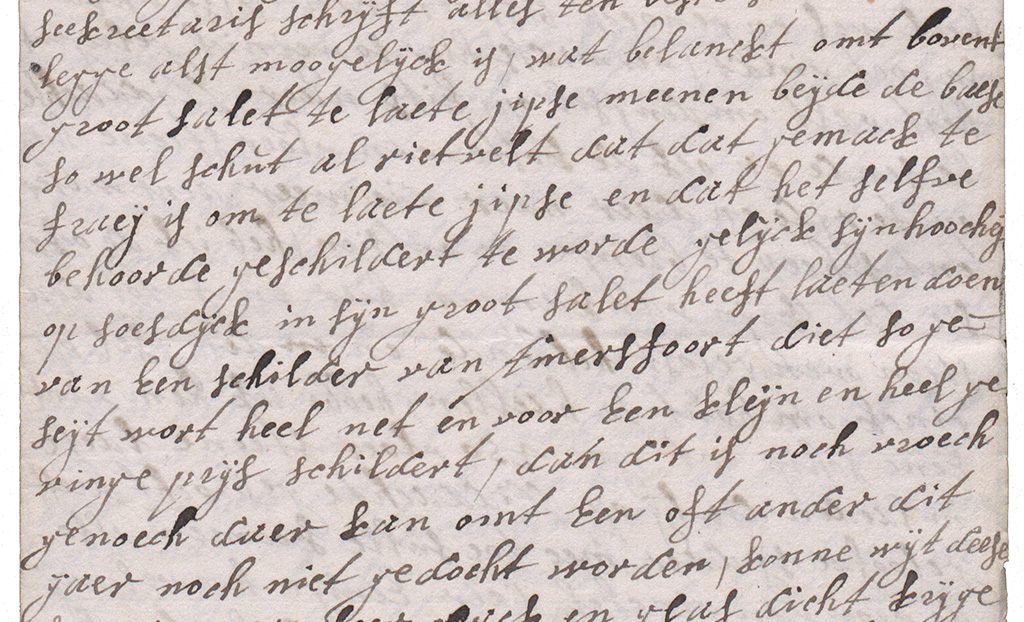 seekreetaris schryft alles ten
legge alst moogelijck is, wat belanckt omt bovent
groot salet te laete jipse meenen beijde de baese
so wel schut al rietvelt dat dat gemack te
fraeij is om te laete jipse en dat het selfve
behoorde geschildert te worde gelijck sijnhoocheij
op soesdijck in sijn groot salet heeft laeten doen
van een schilder van Amersfoort diet so ge-
seijt wort heel net en voor een kleijn en heel ge
ringe prijs schildert, dan dit is noch vroech
genoech daer kan omt een oft ander dit
jaer noch niet gedocht worden, konne wijt deese
en glas dicht krijge